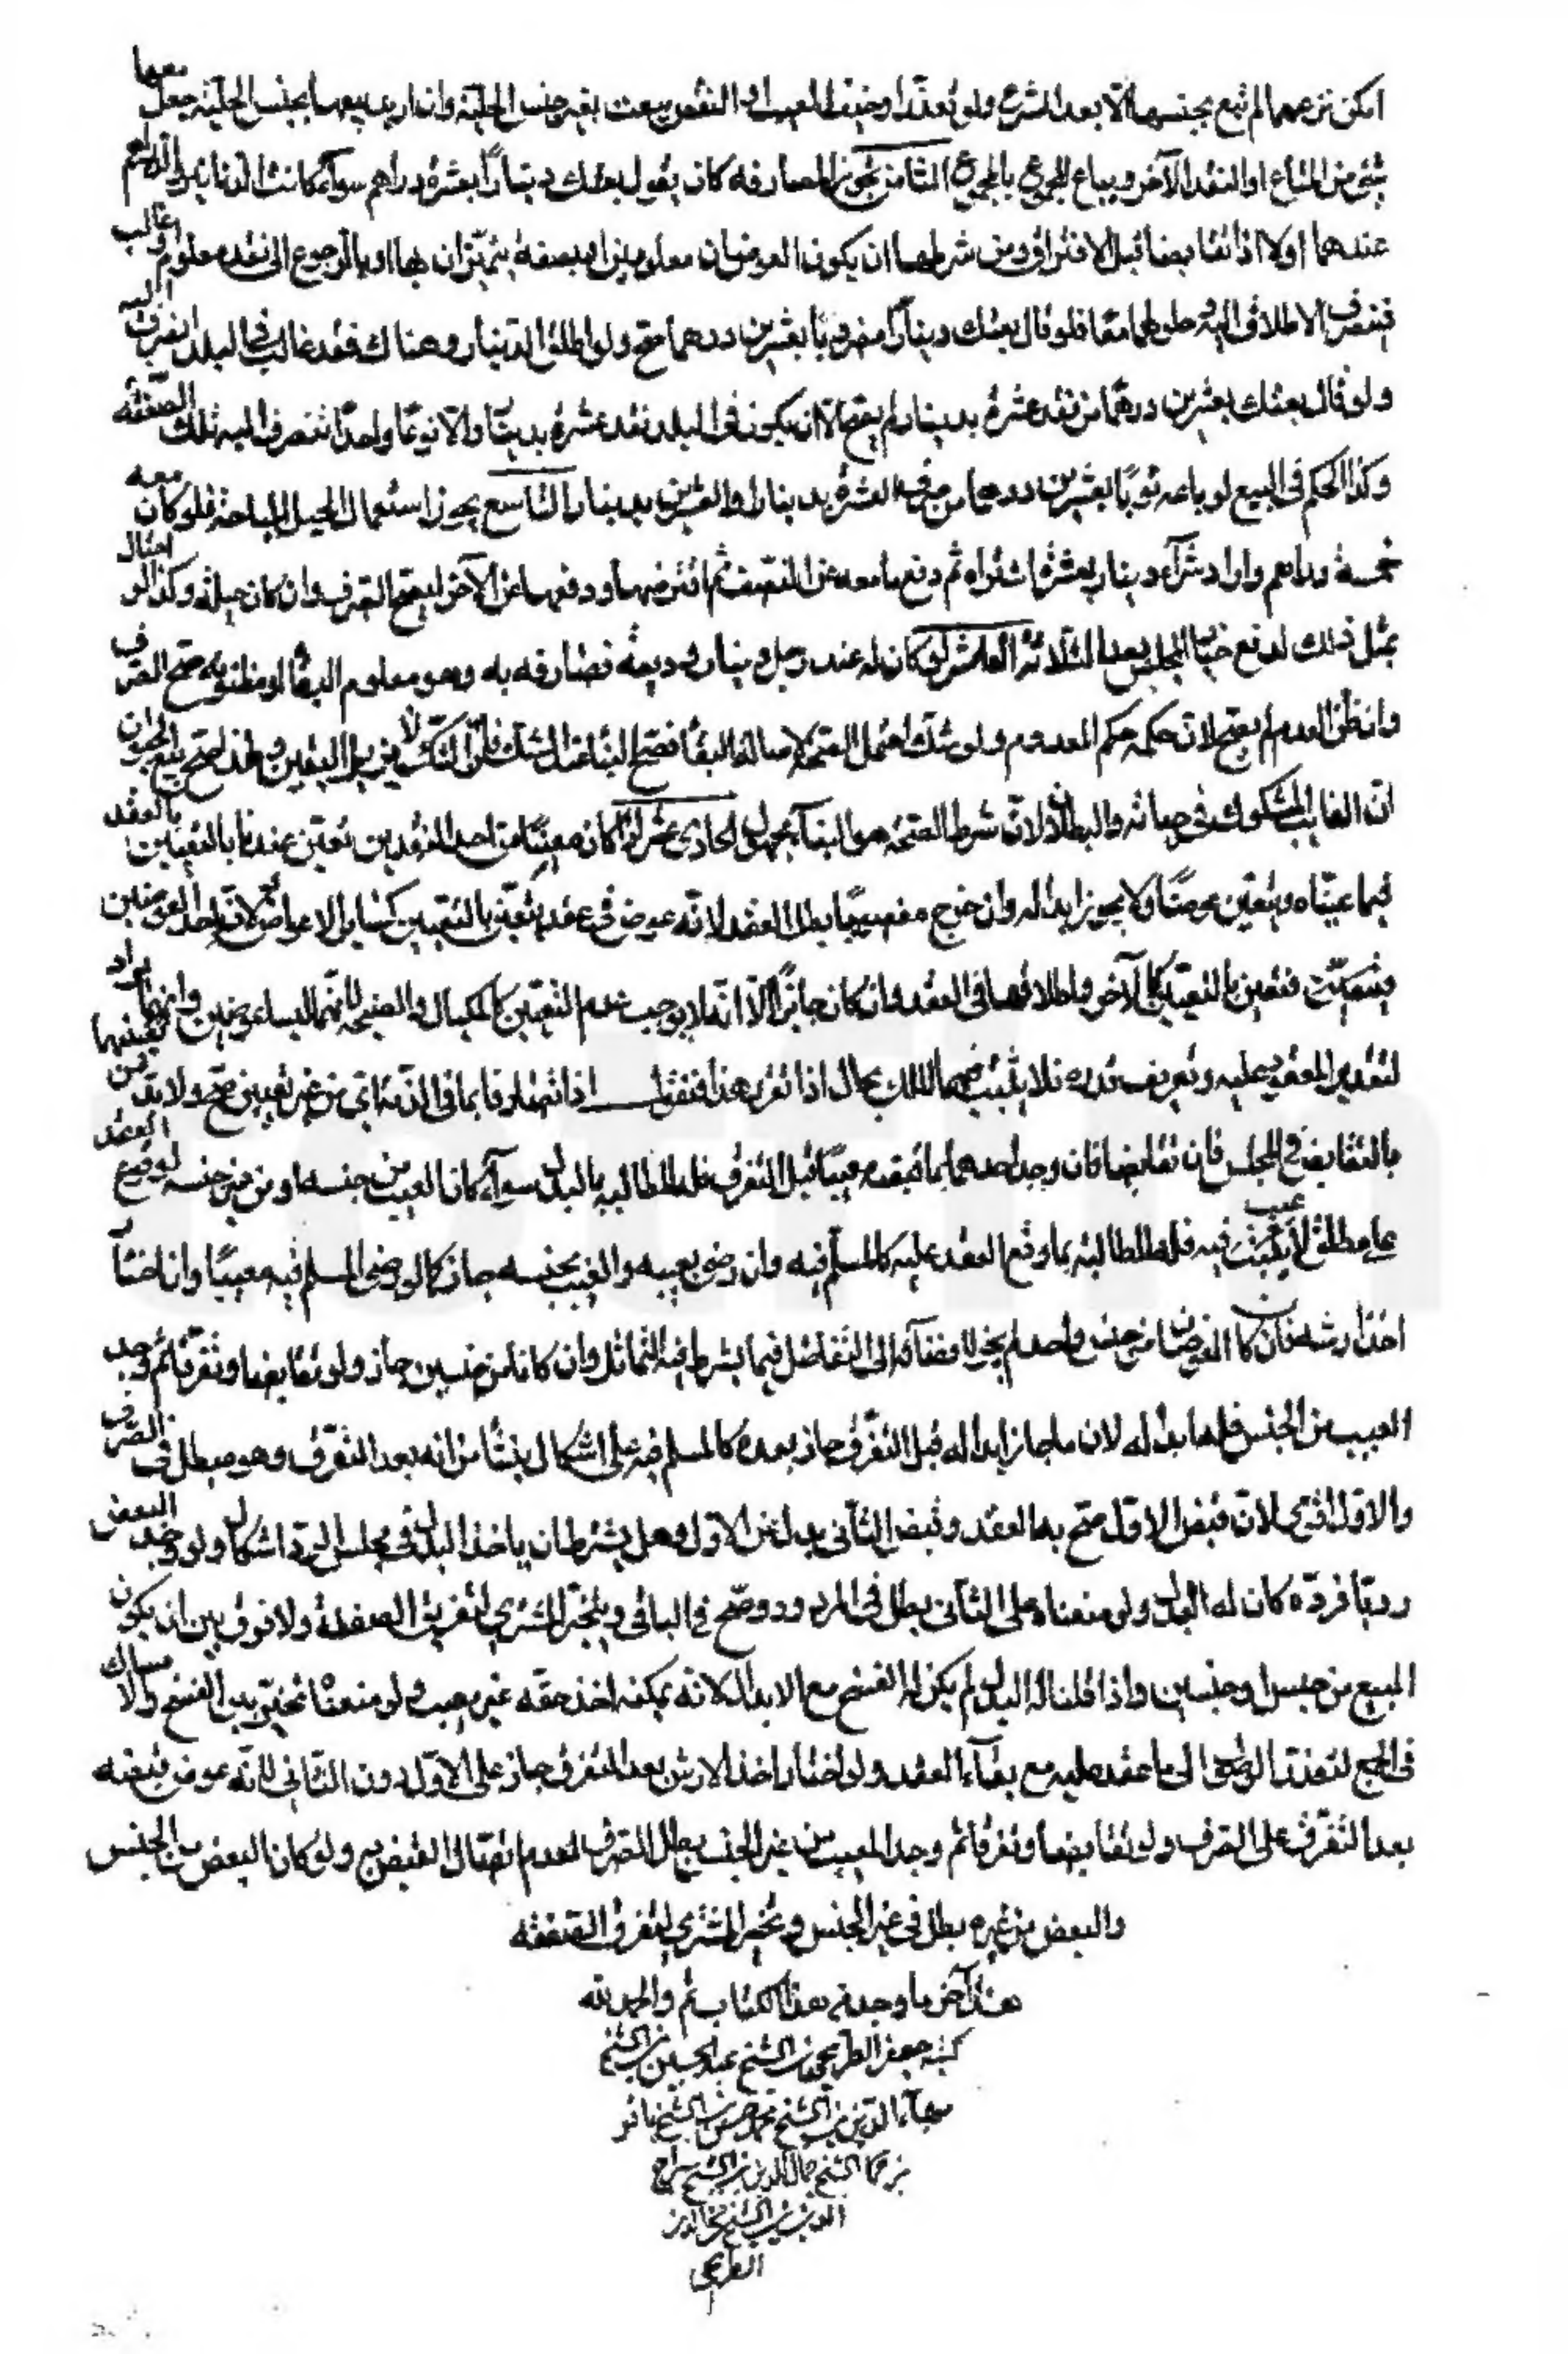 امكن نزعهما لم تبع بجنسها الا بعد الشرع ولو تعذر او خيف العيب او النقص بيعت بغير جنس الحلية وان اريد بيعها بجنس الحلية جعل معها
شئ من المتاع او النقد الآخر ويباع المجموع بالمجموع الثامن تجوز المصارفة كان يقول بعتك ديناراً بعشرة دراهم سوآء كانت الدنانير والدراهم
عندهما اولا اذا تقابضا قبل الافتراق ومن شرطها ان يكون العوضان معلومين او بصفة يتميّزان بها او بالرجوع الى نقد معلوم او غالب
فينصرف الاطلاق اليه فلو قال بعتك ديناراً مضروباً بعشرين درهماً صح ولو اطلق الدينار وهناك نقد غالب في البلد انصرف اليه
ولو قال بعتك بعشرين درهماً من نقد عشرة بدينار لم يصح الا ان يكون في البلد نقد عشرة بدينار والا نوعاً واحداً فتنصرف اليه تلك الصفقه
وكذا الحكم في البيع لو باعه ثوباً بعشرين درهما من صرف العشرة بدينار او العشرين بدينار التاسع يجوز استعمال الحيل المباحة فلو كان معه
خمسة دراهم واراد شرآء دينار بعشرة اشتراه ثم دفع ما معه عن النصف ثم اقترضها ودفعها عن الآخر ليصح الصرف وان كان حيلة وكذا لو احتال
بمثل ذلك لدفع خيار المجلس بعد الثلاثة العاشر لو كان له عند رجل دينار وديعة فصارفه به وهو معلوم البقا او مظنونه صح الصرف
وان ظن العدم لم يصح لان حكمه حكم المعدوم ولو شك احتمل الصحة لاصالة البقا فصح البناء عند الشك فان الشك لا يزيل اليقين ولهذا صح بيع الحيوان
الغائب المشكوك في حياته والبطلان لان شرط الصحة هو البقآء مجهول الحادي عشر لو كان معيناً من احد النقدين تعين عندنا بالتعيين بالعقد
فيما عيناه ويتعين عوضاً ولا يجوز ابداله وان خرج مغصوباً بطل العقد لانه عوض في عقد يتعين بالتعيين كسائر الاعواض ولانه احد العوضين
فيتعين بالتعيين كالآخر واطلاقها في العقد وان كان جائزاً الا انه لا يوجب عدم التعيين كالمكيال والصنجة لانهما ليسا عوضين وانما يراد تعيينهما
لتقدير المعقود عليه وتعريف قدره فلا يثبت فيهما الملك بحال اذا تقرر هذا فنقول اذا تصارفا بما في الذمة اي من غير تعيين صح ولا بد من
بالتقابض في المجلس فان تقابضا فان وجد احدهما بما قبضه عيباً قبل التفرق فله المطالبه بالبدل سوآء كان العيب من جنسه او من غير جنسه لوقوع العقد
على مطلق لا يثبت فيه عيب فله المطالبة بما وقع العقد عليه كالمسلم فيه وان رضي بعيبه والعيب بجنسه جاز كما لو رضي المسلم فيه معيباً وان اختار
اخذ ارشه فان كان العوضان من جنس واحد لم يجز لافضآئه الى التفاضل فيما يشترط فيه التماثل وان كانا من جنسين جاز ولو تقابضا وتفرقا ثم وجد
العيب من الجنس فلهما بداله لان ما جاز ابداله قبل التفرق جاز بعده كالمسلم فيه على اشكال ينشا من انه بعد التفرق وهو مبطل في الصرف
والاول اقوى لان قبض الاول صح به العقد وقبض الثاني بدل عن الاول وهل يشترط ان ياخذ البدل في مجلس الرد اشكال ولو وجد البعض
ردياً فرده كان له البدل ولو منعناه على الثاني بطل في المردود وصح في الباقي ويتخير المشتري لتفريق الصفقة ولا فرق بين ان يكون
المبيع من جنس او جنسين واذا قلنا له البدل لم يكن له الفسخ مع الابدال لانه يمكنه اخذ حقه غير معيب ولو منعنا تخير بين الفسخ والامساك
في الجميع لتعذر الوصول الى ما عقد عليه مع بقآء العقد ولو اختار اخذ الارش بعد التفرق جاز على الاول دون الثاني لانه عوض قبضه
بعد التفرق على الصرف ولو تقابضا وتفرقا ثم وجد العيب من غير الجنس بطل الصرف لعدم اتصال القبض به ولو كان البعض من الجنس
والبعض من غيره بطل في غير الجنس وتخير المشتري لتفرق الصفقه
هذا آخر ما وجد من هذا الكتاب تم والحمد لله
كتبه جعفر الطريحي بن الشيخ عبد الحسين بن الشيخ
بهآء الدين بن الشيخ محمد حسن بن الشيخ باقر
بن الشيخ جلال الدين بن الشيخ
الدين بن الشيخ فخر الدين
الطريحي